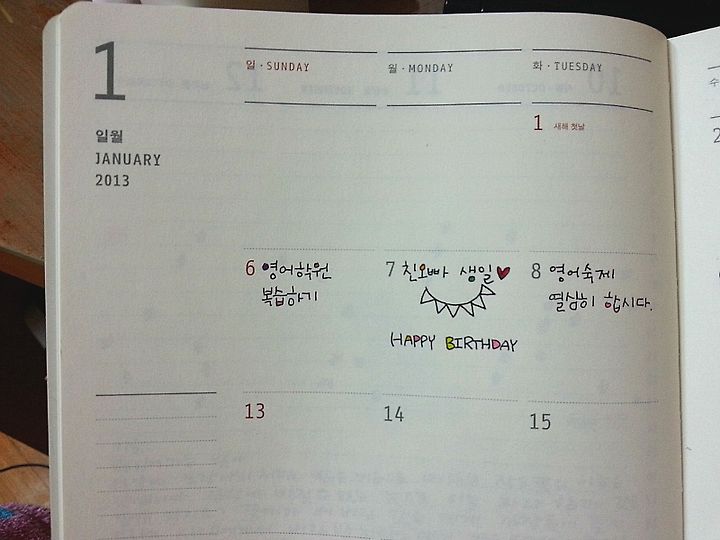 1
일월
JANUARY
2013
일·SUNDAY
월·MONDAY
화·TUESDAY
수
1 새해 첫날
2
6 영어학원
복습하기
7 친오빠 생일♥
HAPPY BIRTHDAY
8 영어숙제
열심히 합시다.
13
14
15